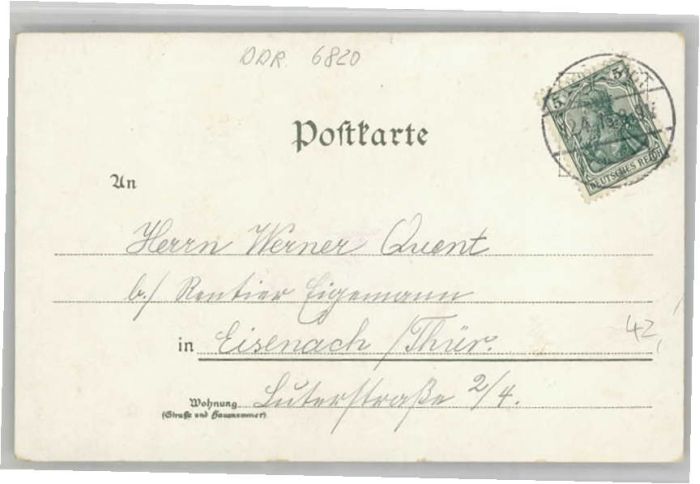 DDR. 6820
Postkarte
5 5
DEUTSCHES REICH
An
Herrn Werner Quent
b./ Rentier Eigemann
in Eisenach /Thür.
42,
Wohnung
(Straße und Hausnummer)
Luterstraße 2/4.